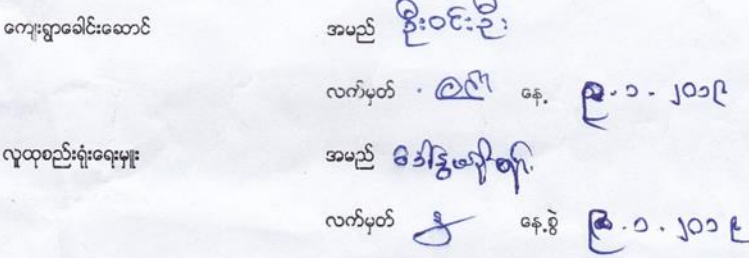 ကျေးရွာခေါင်းဆောင် အမည် ဦးဝင်းဦး
လက်မှတ် နေ့ ၁ - ၂၀၁၉
လူထုစည်းရုံးရေးမှူး အမည် ဒေါ်နွယ်
လက်မှတ် နေ့စွဲ ၁ . ၂၀၁၉